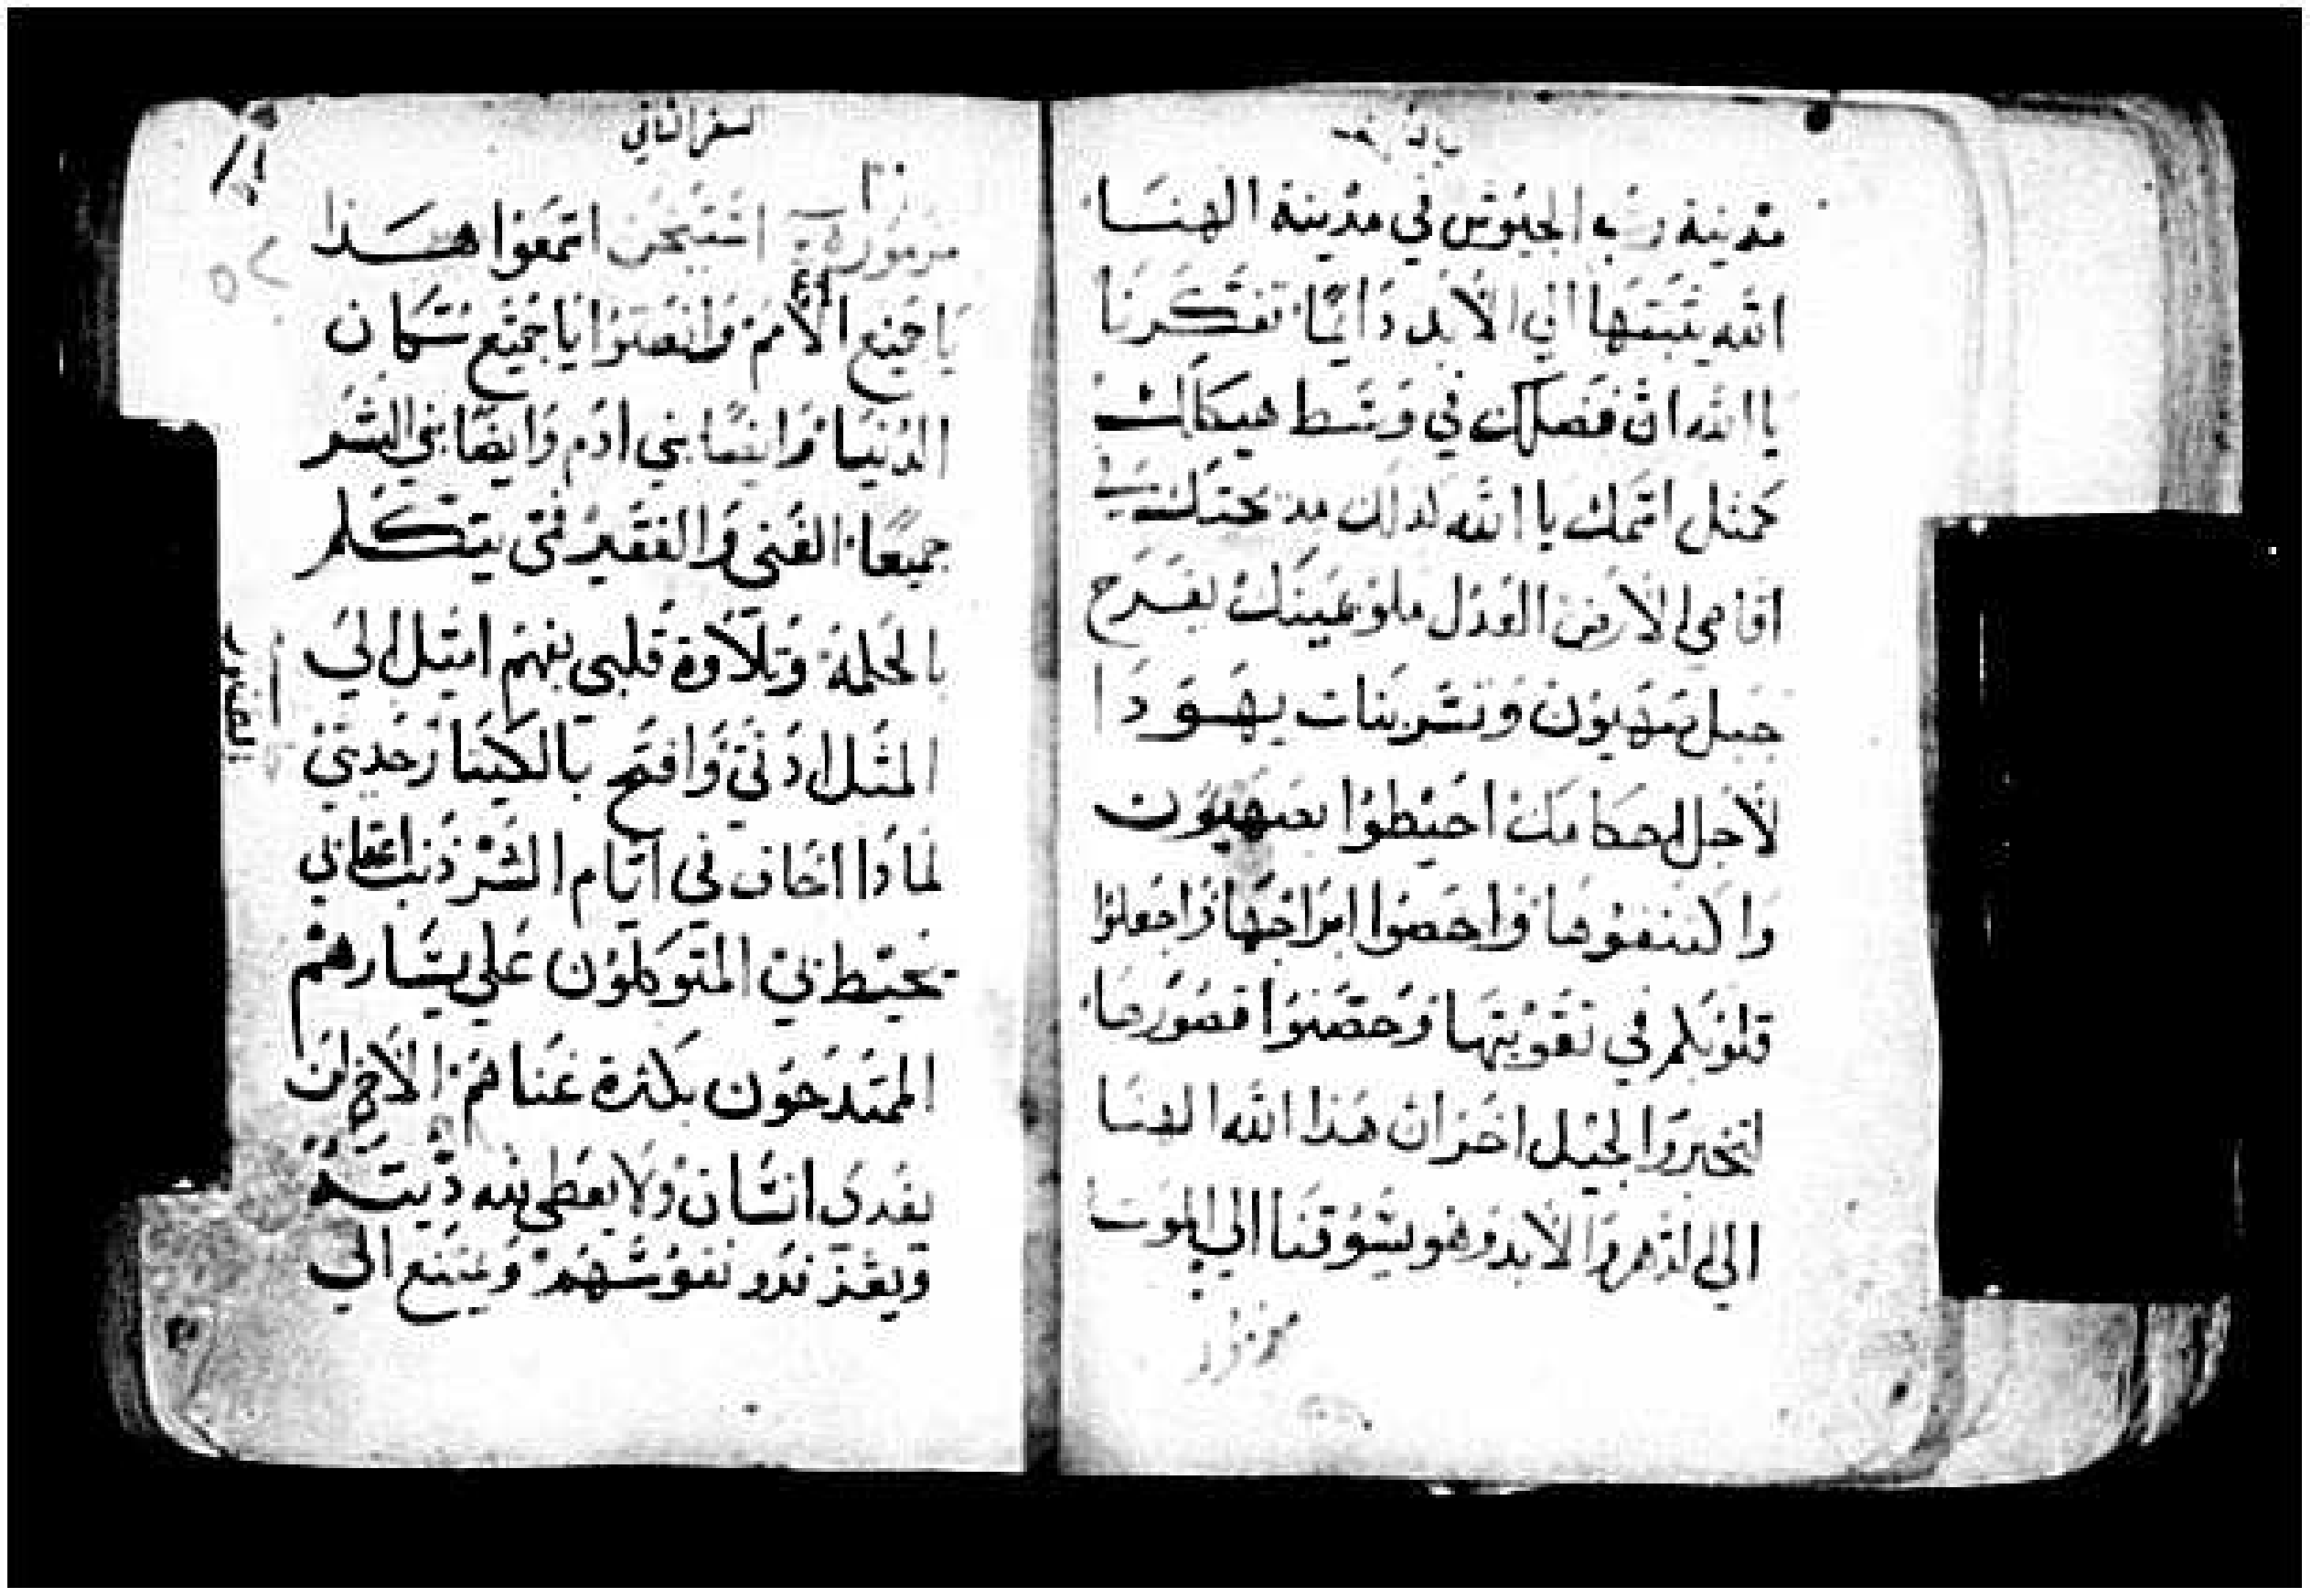 مدينة رب الجيوش في مدينة الهنا
الله يثبتها الي الابد دايما تفكرنا
يا الله ان فضلك في وسط هيكلك
كمثل اسمك يا الله لذلك مدحتك علي
اقاصي الارض العدل ملو يمينك يفرح
جبل صهيون وتسر بنات يهودا
لاجل احكامك احيطوا بصهيون
واكتنفوها واحصوا ابراجها واجعلوا
قلوبكم في تقويتها وحصنوا قصورها
لتخبروا الجيل اخر ان هذا الله الهنا
الي الدهر والابد وهو يسوقنا الي الموت
مزمور
السفر الثاني
مزمور استمعوا هذا
يا جميع الامم وانصتوا يا جميع سكان
الدنيا وايضا بني ادم وايضا بني البشر
جميعا الغني والفقير فمي يتكلم
بالحكمة وتلاوة قلبي بفهم اميل الي
المثل اذني وافتح بالكينار حديثي
لماذا اخاف في ايام الشر ذنب اعقابي
تحيط بي المتوكلون علي يسارهم
الممتدحون بكثرة غناهم الاخ لن
يفدي انسان ولا يعطي لله ديته
ويعز فدو نفوسهم ويمنع الي